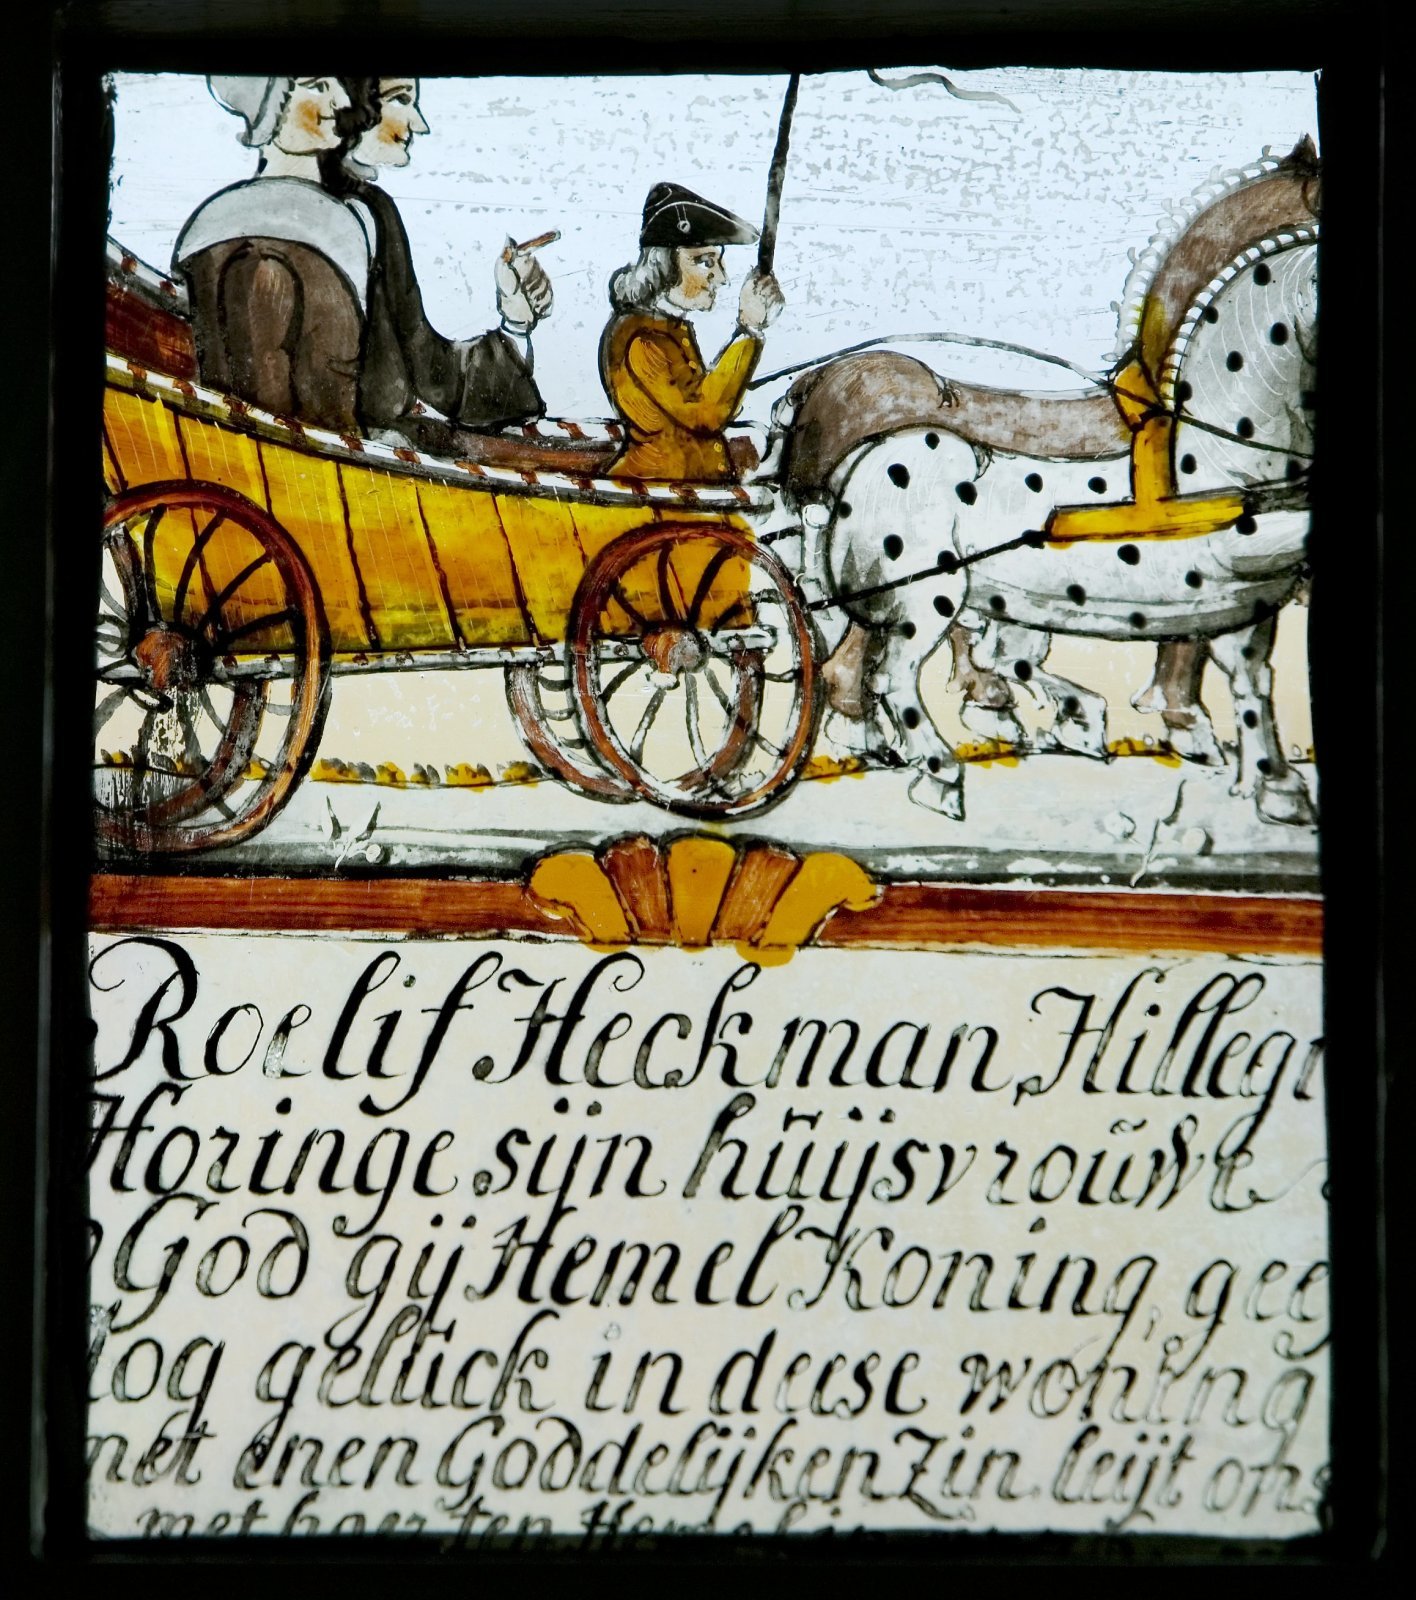 Roelif Heckman, Hillegi
Horinge sijn hüijsvroüwe
God gij Hemel Koning, gee
log gelück in deese woning
met enen Goddelijken Zin leijt ons
met haer ten Hemel in